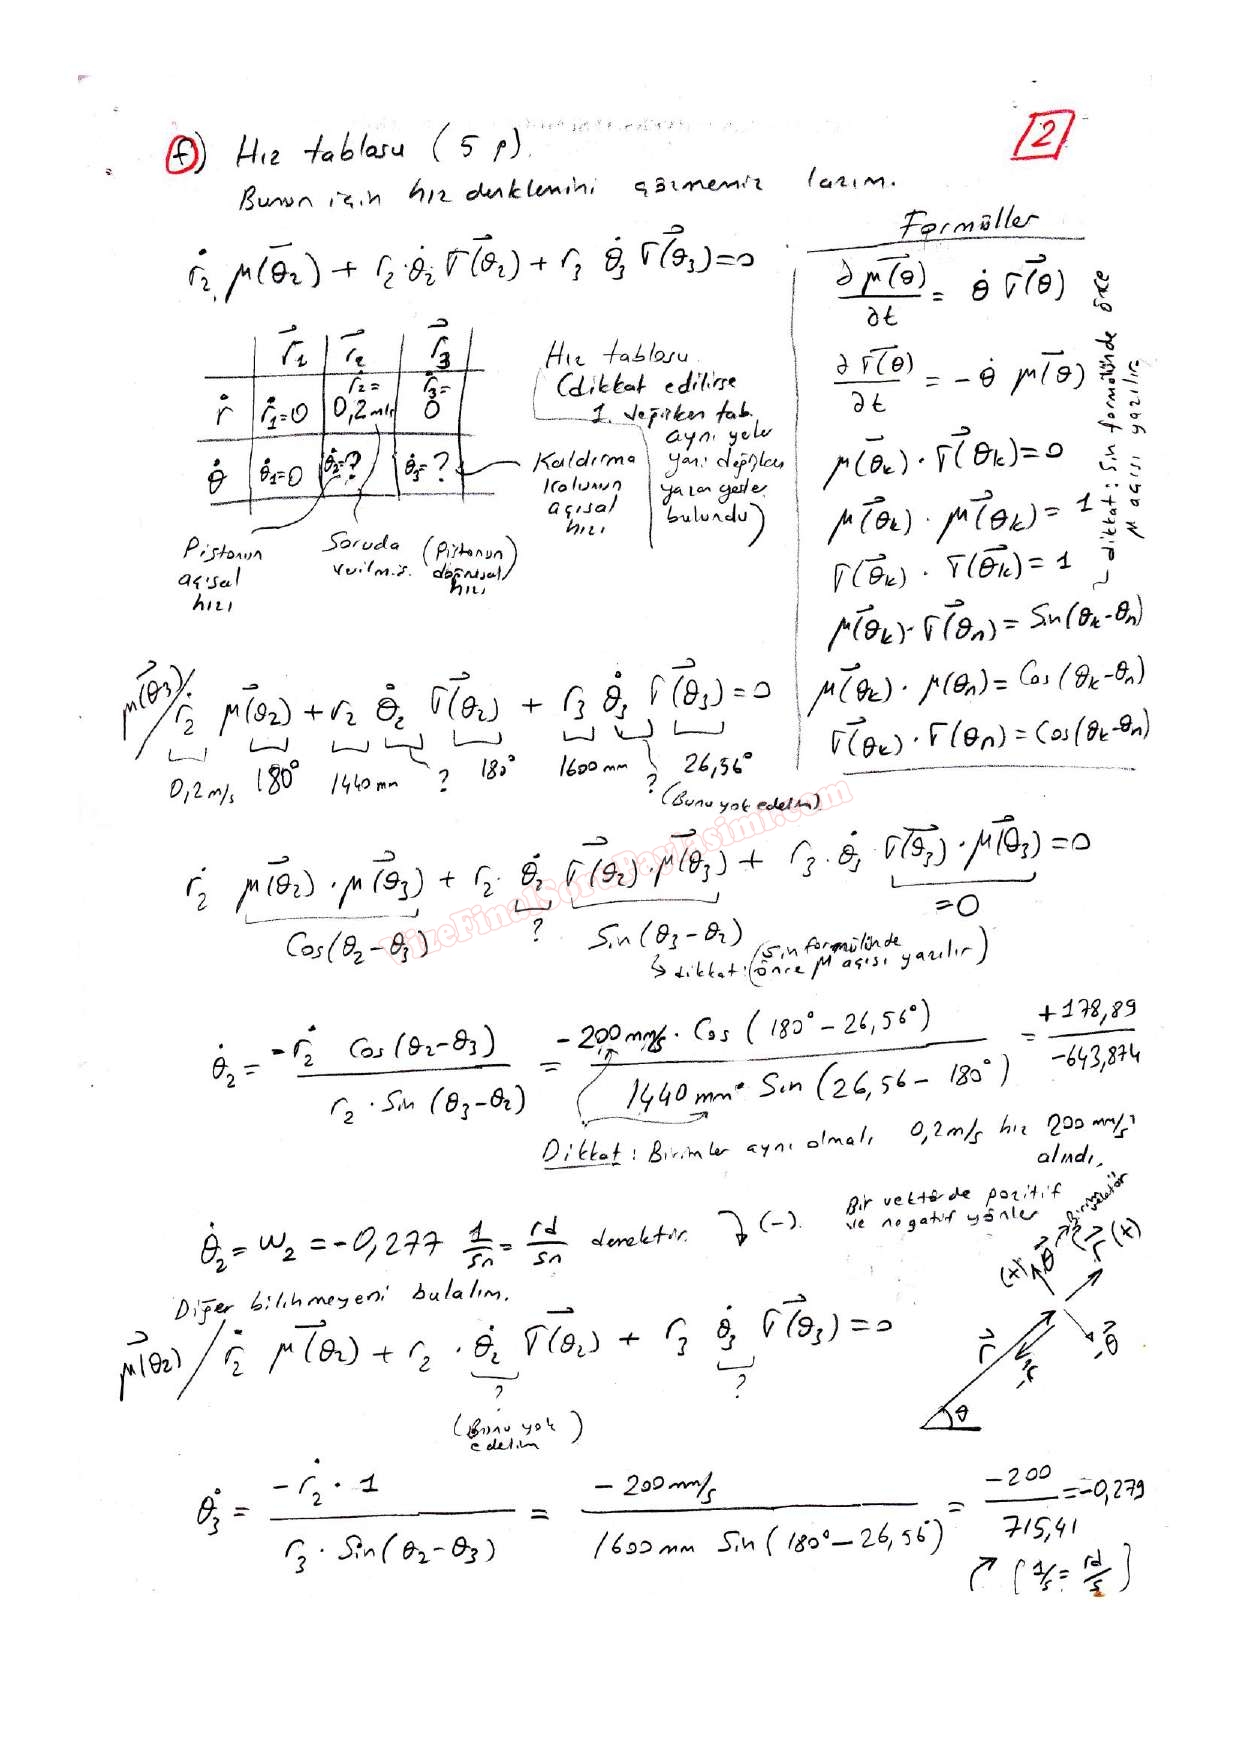 2
f) Hız tablosu (5 p).
Bunun için hız denklemini çözmemiz lazım.
ṙ2 μ(θ2) + r2·θ̇2 Γ(θ2) + r3 θ̇3 Γ(θ3)=0
Formüller
∂μ(θ)/∂t = θ̇ Γ(θ)
∂Γ(θ)/∂t = -θ̇ μ(θ)
μ(θk)·Γ(θk)=0
μ(θk)·μ(θk)=1
Γ(θk)·Γ(θk)=1
μ(θk)·Γ(θn)=Sin(θk-θn)
μ(θk)·μ(θn)=Cos(θk-θn)
Γ(θk)·Γ(θn)=Cos(θk-θn)
dikkat: Sin formülünde önce
μ açısı yazılır
r1 r2 r3
ṙ ṙ1=0 ṙ2=0,2 m/s ṙ3=0
θ̇ θ̇1=0 θ̇2=? θ̇3=?
Hız tablosu
(dikkat edilirse
1. değişken tab.
aynı yerler
yani değişken
yazan yerler
bulundu)
Kaldırma
kolunun
açısal
hızı
Pistonun
açısal
hızı
Soruda
verilmiş.
(Pistonun
doğrusal)
hızı
μ(θ3)/ ṙ2 μ(θ2) + r2 θ̇2 Γ(θ2) + r3 θ̇3 Γ(θ3)=0
0,2m/s 180° 1440mm ? 180° 1600mm ? 26,56°
(Bunu yok edelim)
VizeFinalSoruPaylasimi.com
ṙ2 μ(θ2)·μ(θ3) + r2·θ̇2 Γ(θ2)·μ(θ3) + r3·θ̇3 Γ(θ3)·μ(θ3)=0
Cos(θ2-θ3) ? Sin(θ3-θ2) =0
dikkat: (Sin formülünde
önce μ açısı yazılır)
θ̇2 = -ṙ2 Cos(θ2-θ3) / r2·Sin(θ3-θ2) = -200mm/s·Cos(180°-26,56°) / 1440mm·Sin(26,56-180°) = +178,89 / -643,874
Dikkat: Birimler aynı olmalı 0,2m/s hız 200mm/s
alındı.
θ̇2 = ω2 = -0,277 1/sn = rd/sn demektir. (-).
Bir vektörde pozitif
ve negatif yönler
Birim vektör
(+) θ r (+)
r -r -θ
θ
Diğer bilinmeyeni bulalım.
μ(θ2)/ ṙ2 μ(θ2) + r2·θ̇2 Γ(θ2) + r3 θ̇3 Γ(θ3)=0
? ?
(Bunu yok
edelim)
θ̇3 = -ṙ2·1 / r3·Sin(θ2-θ3) = -200mm/s / 1600mm Sin(180°-26,56°) = -200 / 715,41 = -0,279
(1/s = rd/s)